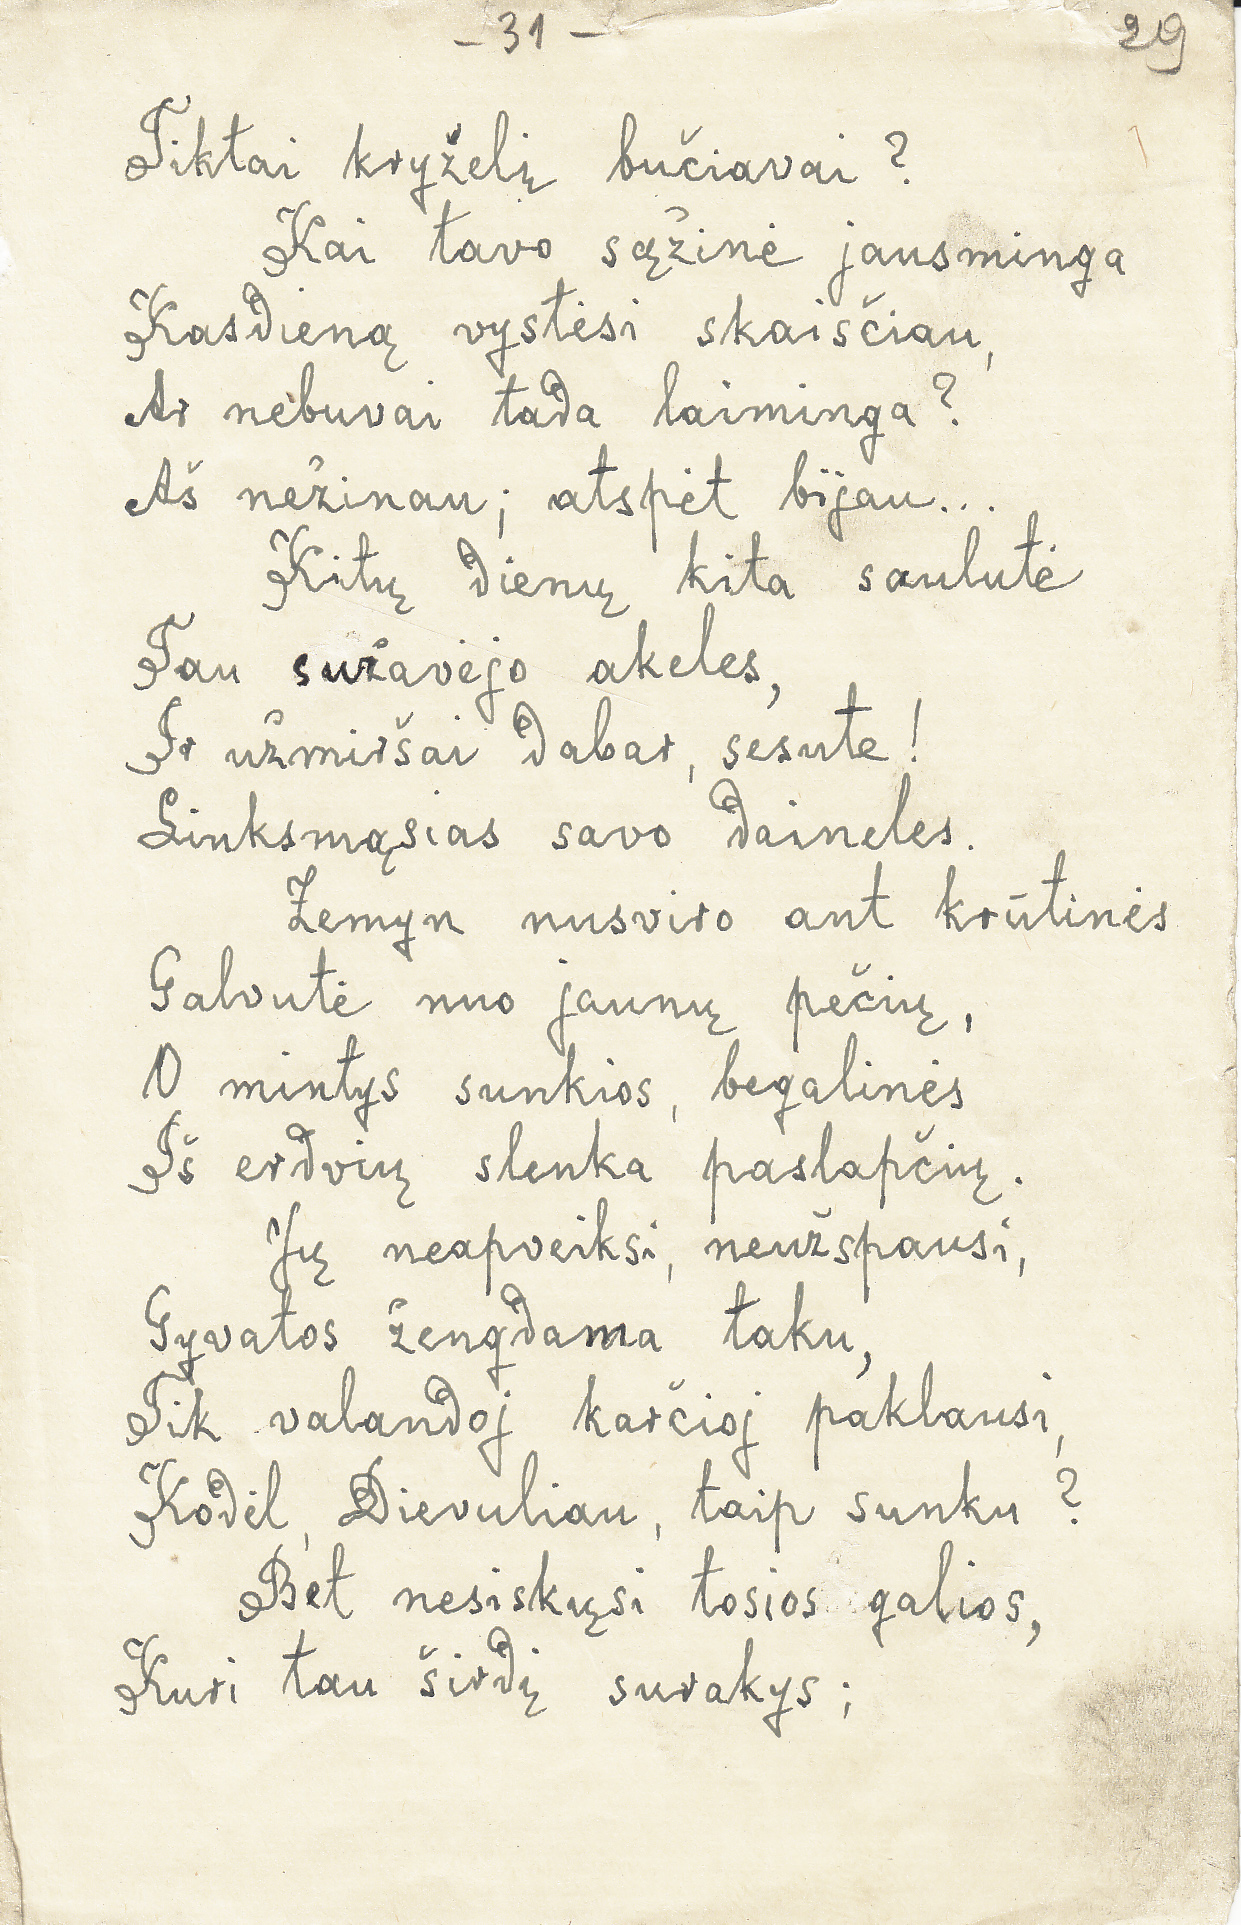 – 31 –
29
Tiktai kryželį bučiavai?
Kai tavo sąžinė jausminga
Kasdieną vystėsi skaisčiau,
Ar nebuvai tada laiminga?
Aš nežinau; atspėt bijau...
Kitų dienų kita saulutė
Tau sužavėjo akeles,
Ir užmiršai dabar, sesute!
Linksmąsias savo daineles.
Žemyn nusviro ant krūtinės
Galvutė nuo jaunų pečių,
O mintys sunkios, begalinės
Iš erdvių slenka paslapčių.
Jų neapveiksi, neužspausi,
Gyvatos žengdama taku,
Tik valandoj karčioj paklausi,
Kodėl, Dievuliau, taip sunku?
Bet nesiskųsi tosios galios,
Kuri tau širdį surakys;